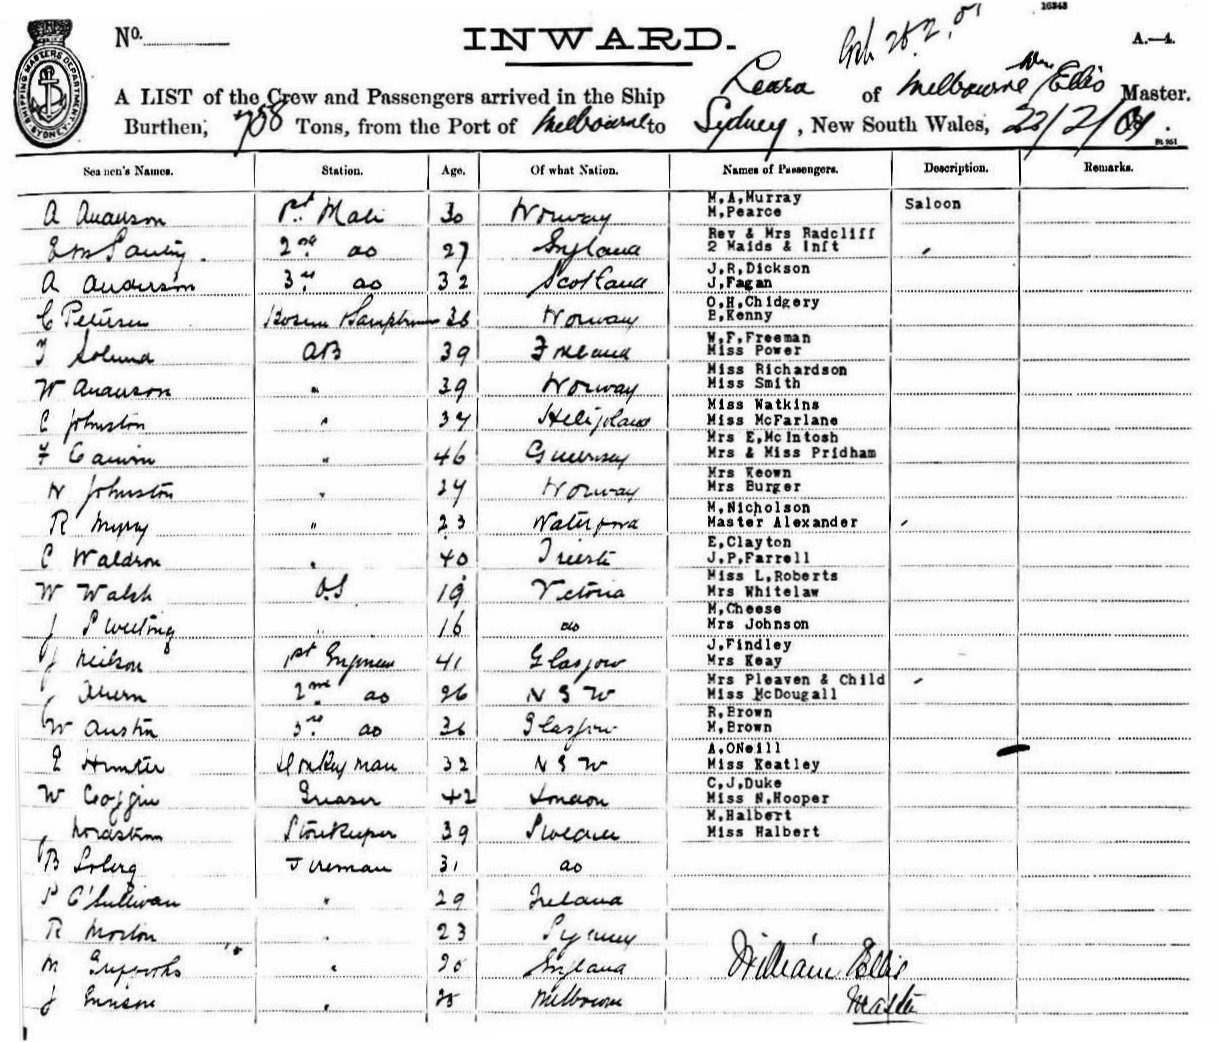 16243
No.
INWARD.
A.—4.
A LIST of the Crew and Passengers arrived in the Ship of Melbourne Wm Ellis Master.
Burthen, Tons, from the Port of Melbourne to Sydney, New South Wales, 22/2/01.
SHIPPING MASTERS DEPARTMENT SYDNEY
Seamen's Names. Station. Age. Of what Nation. Names of Passengers. Description. Remarks.
M.A.Murray
A 1st Mate 30 Norway M.Pearce Saloon
Rev & Mrs Radcliff
2nd do 27 England 2 Maids & Inft "
J.R.Dickson
A Anderson 3rd do 32 Scotland J.Fagan
O.H.Chidgery
C Petersen Bosun Lamptrimmer 36 Norway E.Kenny
W.F.Freeman
AB 39 Miss Power
Miss Richardson
W 39 Norway Miss Smith
Miss Watkins
C Johnston " 37 Heligoland Miss McFarlane
Mrs E.McIntosh
F " 46 Guernsey Mrs & Miss Pridham
Mrs Keown
N Johnston " 24 Norway Mrs Burger
M.Nicholson
R " 23 Waterford Master Alexander "
E.Clayton
C Waldron " 40 Trieste J.P.Farrell
Miss L.Roberts
W Walsh O.S 19 Victoria Mrs Whitelaw
M.Cheese
J Sweeting " 16 do Mrs Johnson
J.Findley
J Neilson 1st Engineer 41 Glasgow Mrs Keay
Mrs Pleaven & Child "
Ahern 2nd do 26 N S W Miss McDougall
R.Brown
W Austin 3rd do 36 Glasgow M.Brown
A.ONeill
E Hunter Donkeyman 32 N S W Miss Keatley
C.J.Duke
W Coggin Greaser 42 London Miss N.Hooper
M.Halbert
Nordstrom Storekeeper 39 Sweden Miss Halbert
B Solberg Fireman 31 do
P O'Sullivan " 29 Ireland
R Morton " 23 Sydney
M " 20 England William Ellis
J " 25 Melbourne Master